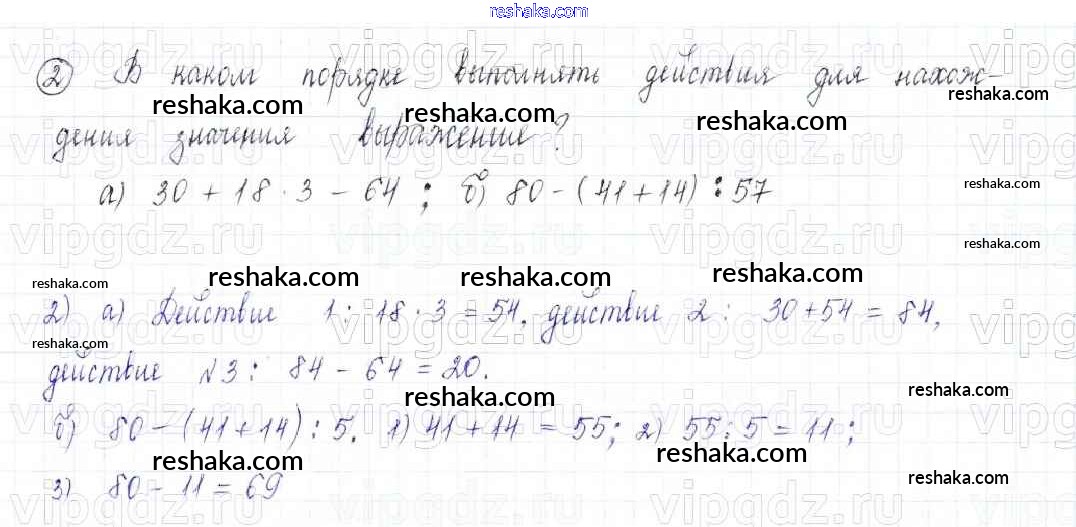 reshaka.com
② В каком порядке выполнять действия для нахож-
reshaka.com reshaka.com reshaka.com reshaka.com
дения значения выражение?
а) 30 + 18 · 3 - 64 ; б) 80 - (41 + 14) : 57
reshaka.com
vipgdz.ru vipgdz.ru vipgdz.ru
reshaka.com
reshaka.com reshaka.com reshaka.com reshaka.com
2) а) Действие 1: 18 · 3 = 54, действие 2: 30 + 54 = 84,
reshaka.com
действие №3: 84 - 64 = 20.
reshaka.com reshaka.com reshaka.com
б) 80 - (41 + 14) : 5. 1) 41 + 14 = 55; 2) 55 : 5 = 11;
reshaka.com reshaka.com reshaka.com
3) 80 - 11 = 69